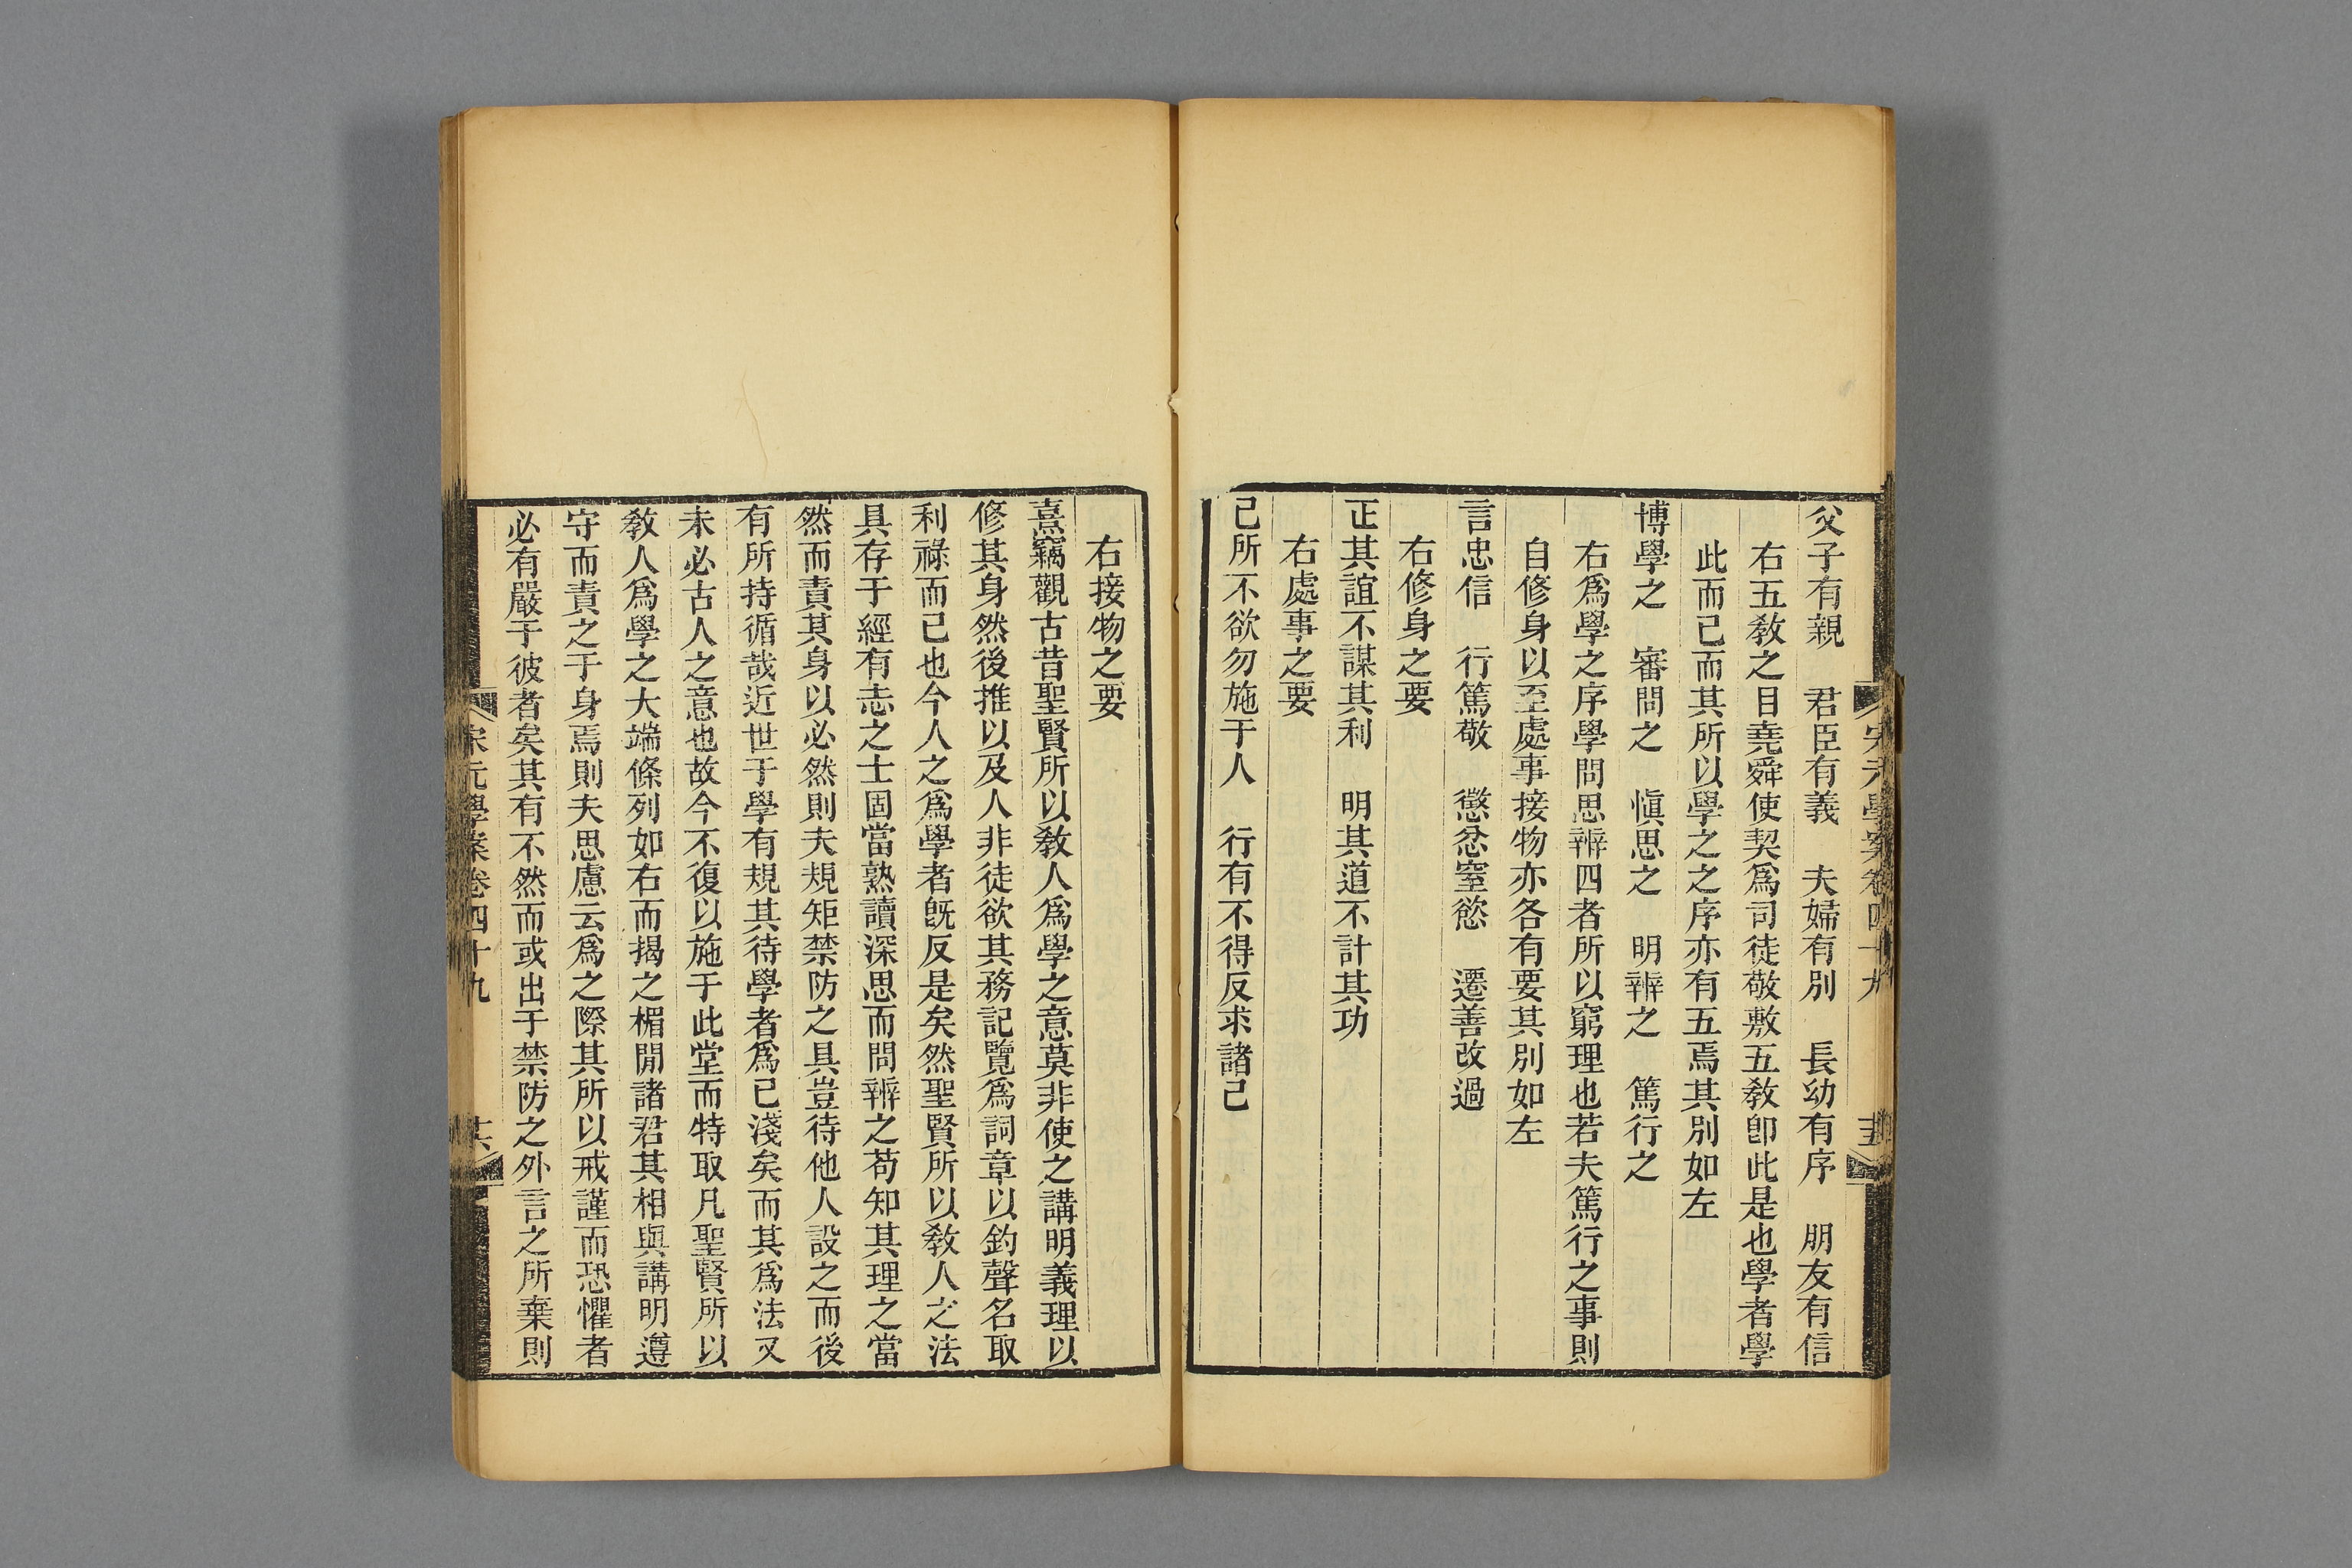 父子有親　君臣有義　夫婦有別　長幼有序　朋友有信
右五敎之目堯舜使契爲司徒敬敷五敎卽此是也學者學
此而已而其所以學之之序亦有五焉其別如左
博學之　審問之　愼思之　明辨之　篤行之
右爲學之序學問思辨四者所以窮理也若夫篤行之事則
自修身以至處事接物亦各有要其別如左
言忠信　行篤敬　懲忿窒慾　遷善改過
右修身之要
正其誼不謀其利　明其道不計其功
右處事之要
己所不欲勿施于人　行有不得反求諸己
右接物之要
熹竊觀古昔聖賢所以敎人爲學之意莫非使之講明義理以
修其身然後推以及人非徒欲其務記覽爲詞章以釣聲名取
利祿而已也今人之爲學者旣反是矣然聖賢所以敎人之法
具存于經有志之士固當熟讀深思而問辨之苟知其理之當
然而責其身以必然則夫規矩禁防之具豈待他人設之而後
有所持循哉近世于學有規其待學者爲已淺矣而其爲法又
未必古人之意也故今不復以施于此堂而特取凡聖賢所以
敎人爲學之大端條列如右而揭之楣閒諸君其相與講明遵
守而責之于身焉則夫思慮云爲之際其所以戒謹而恐懼者
必有嚴于彼者矣其有不然而或出于禁防之外言之所棄則
宋元學案卷四十九